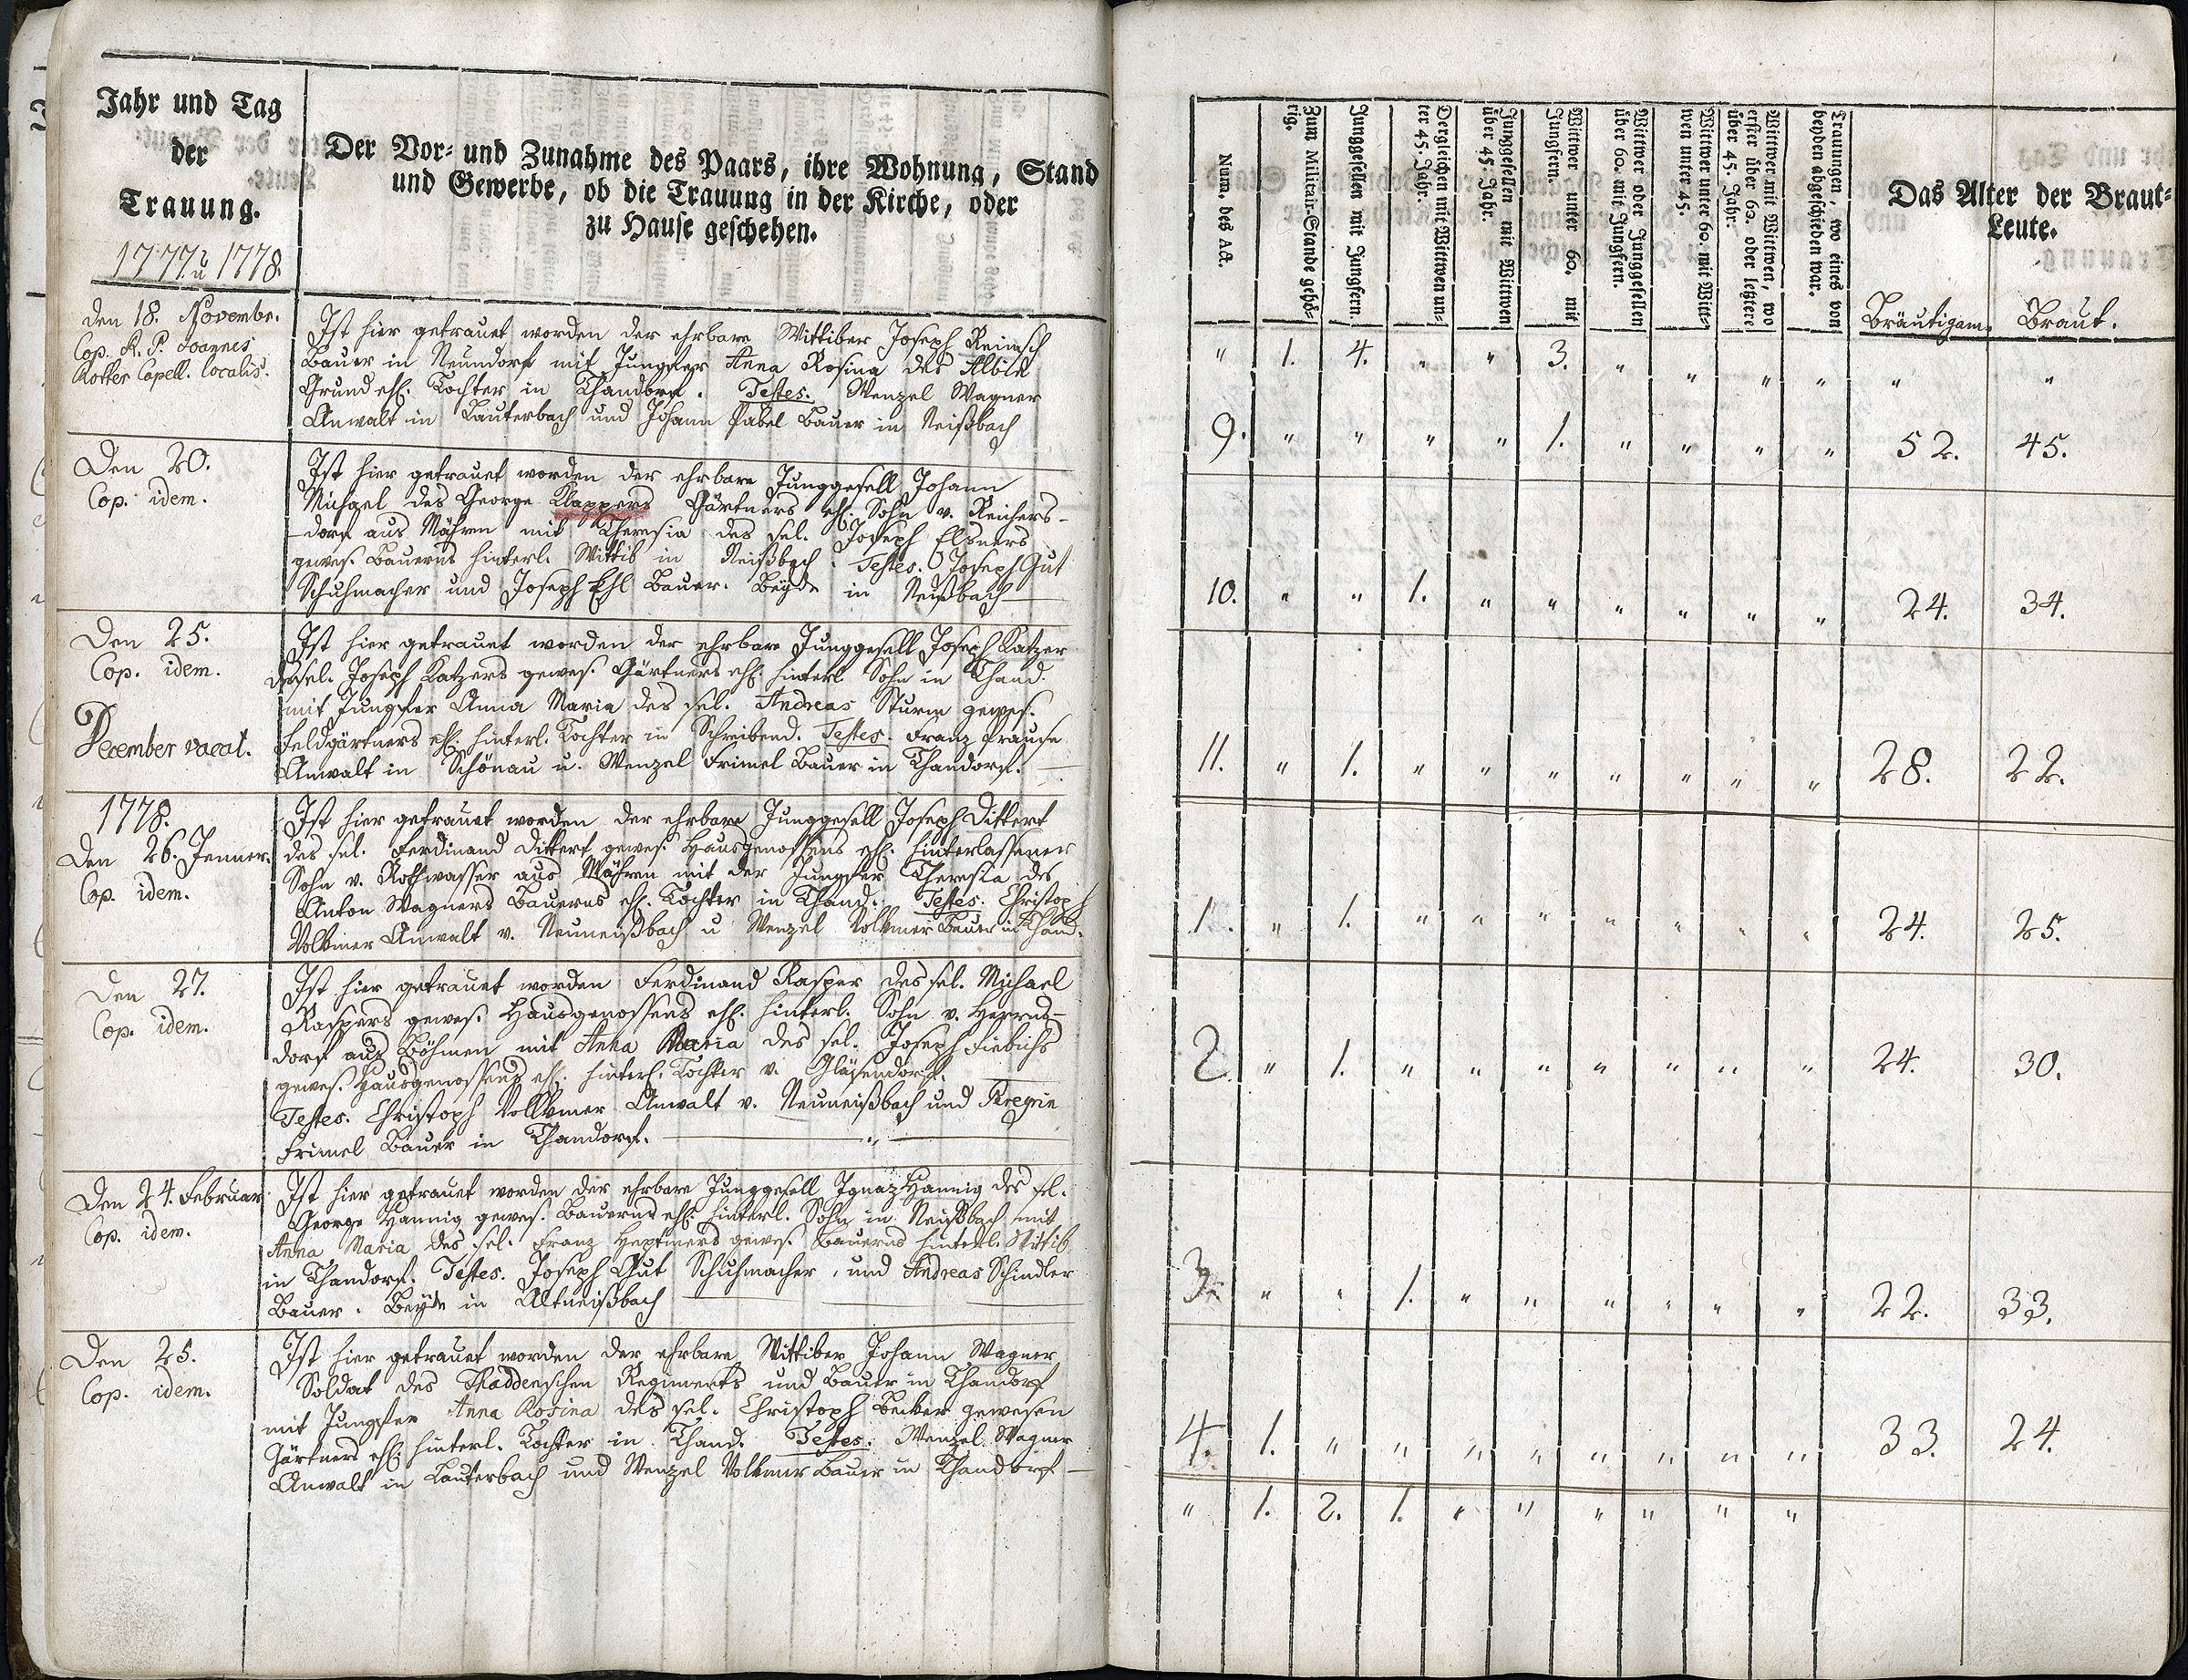 Jahr und Tag
der
Trauung.
1777. u 1778.
Der Vor- und Zunahme des Paars, ihre Wohnung, Stand
und Gewerbe, ob die Trauung in der Kirche, oder
zu Hause geschehen.
Num. des Act.
Zum Militair-Stande gehö-
rig.
Junggesellen mit Jungfern.
Dergleichen mit Wittwen un-
ter 45. Jahr.
Junggesellen mit Wittwen
über 45. Jahr.
Wittwer unter 60. mit
Jungfern.
Wittwer oder Junggesellen
über 60. mit Jungfern.
Wittwer unter 60. mit Witt-
wen unter 45.
Wittwer mit Wittwen, wo
erster über 60. oder letztere
über 45. Jahr.
Trauungen, wo eines von
beyden abgeschieden war.
Das Alter der Braut-
Leute.
Bräutigam. Braut.
" 1. 4. " " 3. " " " " " "
den 18. Novembr.
Cop. R. P. Joannes
Rotter Capell. localis.
Ist hier getrauet worden der ehrbare Wittiber Joseph Reinsch
Bauer in Neundorf mit Jungfer Anna Rosina des Albin
Grund ehl. Tochter in Thandorf. Testes. Wenzel Wagner
Anwalt in Lauterbach und Johann Pabel Bauer in Neißbach
9. " " " " 1. " " " " 52. 45.
Den 20.
Cop. idem.
Ist hier getrauet worden der ehrbare Junggesell Johann
Michael des George Klappers Gärtners ehl. Sohn v. Reichers-
-dorf aus Mähren mit Theresia des sel. Joseph Elsners
gewes. Bauerns hinterl. Wittib in Neißbach. Testes. Joseph Gut
Schuhmacher und Joseph Ehl Bauer. Beyde in Neißbach
10. " " 1. " " " " " " 24. 34.
Den 25.
Cop. idem.
December vacat.
Ist hier getrauet worden der ehrbare Junggesell Joseph Katzer
des sel. Joseph Katzers gewes. Gärtners ehl. hinterl. Sohn in Thand.
mit Jungfer Anna Maria des sel. Andreas Sturm gewes.
Feldgärtners ehl. hinterl. Tochter in Schreibend. Testes. Franz Prause
Anwalt in Schönau u. Wenzel Frimel Bauer in Thandorf.
11. " 1. " " " " " " " 28. 22.
1778.
Den 26. Jenner.
Cop. idem.
Ist hier getrauet worden der ehrbare Junggesell Joseph Dittert
des sel. Ferdinand Dittert gewes. Hausgenossens ehl. hinterlassener
Sohn v. Rothwasser aus Mähren mit der Jungfer Theresia des
Anton Wagners Bauerns ehl. Tochter in Thand. Testes. Christoph
Volkmer Anwalt v. Neuneißbach u Wenzel Volkmer Bauer in Thand.
1. " 1. " " " " " " " 24. 25.
Den 27.
Cop. idem.
Ist hier getrauet worden Ferdinand Rasper des sel. Michael
Raspers gewes. Hausgenossens ehl. hinterl. Sohn v. Herrns-
dorf aus Böhmen mit Anna Maria des sel. Joseph Fiebichs
gewes. Hausgenossens ehl. hinterl. Tochter v. Gläsendorf.
Testes. Christoph Vollkmer Anwalt v. Neuneißbach und Peregrin
Frimel Bauer in Thandorf.
2. " 1. " " " " " " " 24. 30.
Den 24. Februar.
Cop. idem.
Ist hier getrauet worden der ehrbare Junggesell Ignaz Hannig des sel.
George Hannig gewes. Bauerns ehl. hinterl. Sohn in Neißbach mit
Anna Maria des sel. Franz Heptners gewes. Bauerns hinterl. Wittib
in Thandorf. Testes. Joseph Gut Schuhmacher, und Andreas Schindler
Bauer. Beyde in Altneißbach
3. " " 1. " " " " " " 22. 33.
Den 25.
Cop. idem.
Ist hier getrauet worden der ehrbare Wittiber Johann Wagner
Soldat des Thaddenschen Regiments und Bauer in Thandorf
mit Jungfer Anna Rosina des sel. Christoph Becker gewesen
Gärtners ehl. hinterl. Tochter in Thand. Testes. Wenzel Wagner
Anwalt in Lauterbach und Wenzel Volkmer Bauer in Thandorf
4. 1. " " " " " " " " 33. 24.
" 1. 2. 1. " " " " " "